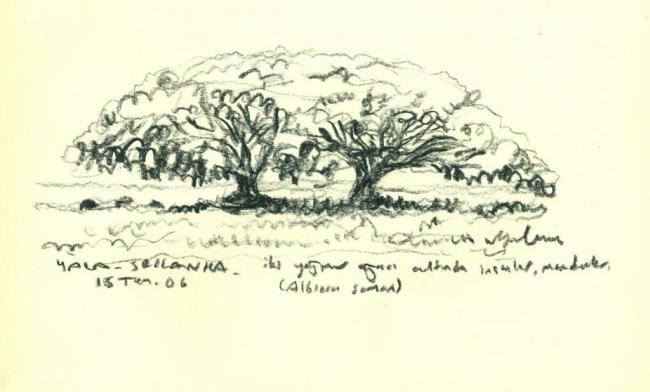 YALA - SRİLANKA. iki yağmur ağacı altında insanlar, mandalar.
15 Tem. 06 (Albizia saman)